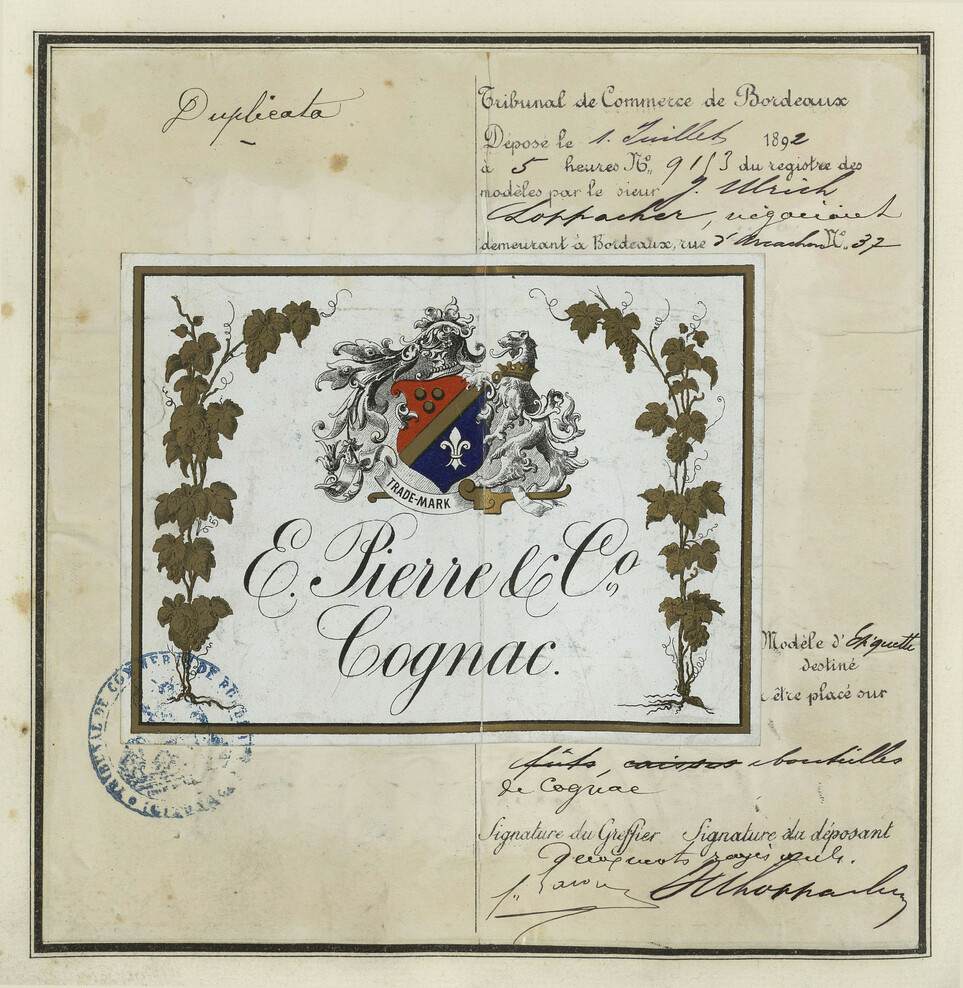 Duplicata
Tribunal de Commerce de Bordeaux
Déposé le 1. Juillet 1892
à 5 heures No. 9153 du registre des
modèles par le sieur J. Ulrich
Loppacher, négociant
demeurant à Bordeaux, rue d'Arcachon No. 37
TRADE-MARK
E. Pierre & Co.
Cognac.
Modèle d'Etiquette
destiné
être placé sur
fûts, caisses bouteilles
de Cognac
Signature du Greffier Signature du déposant
rayés nuls.
TRIBUNAL DE COMMERCE DE